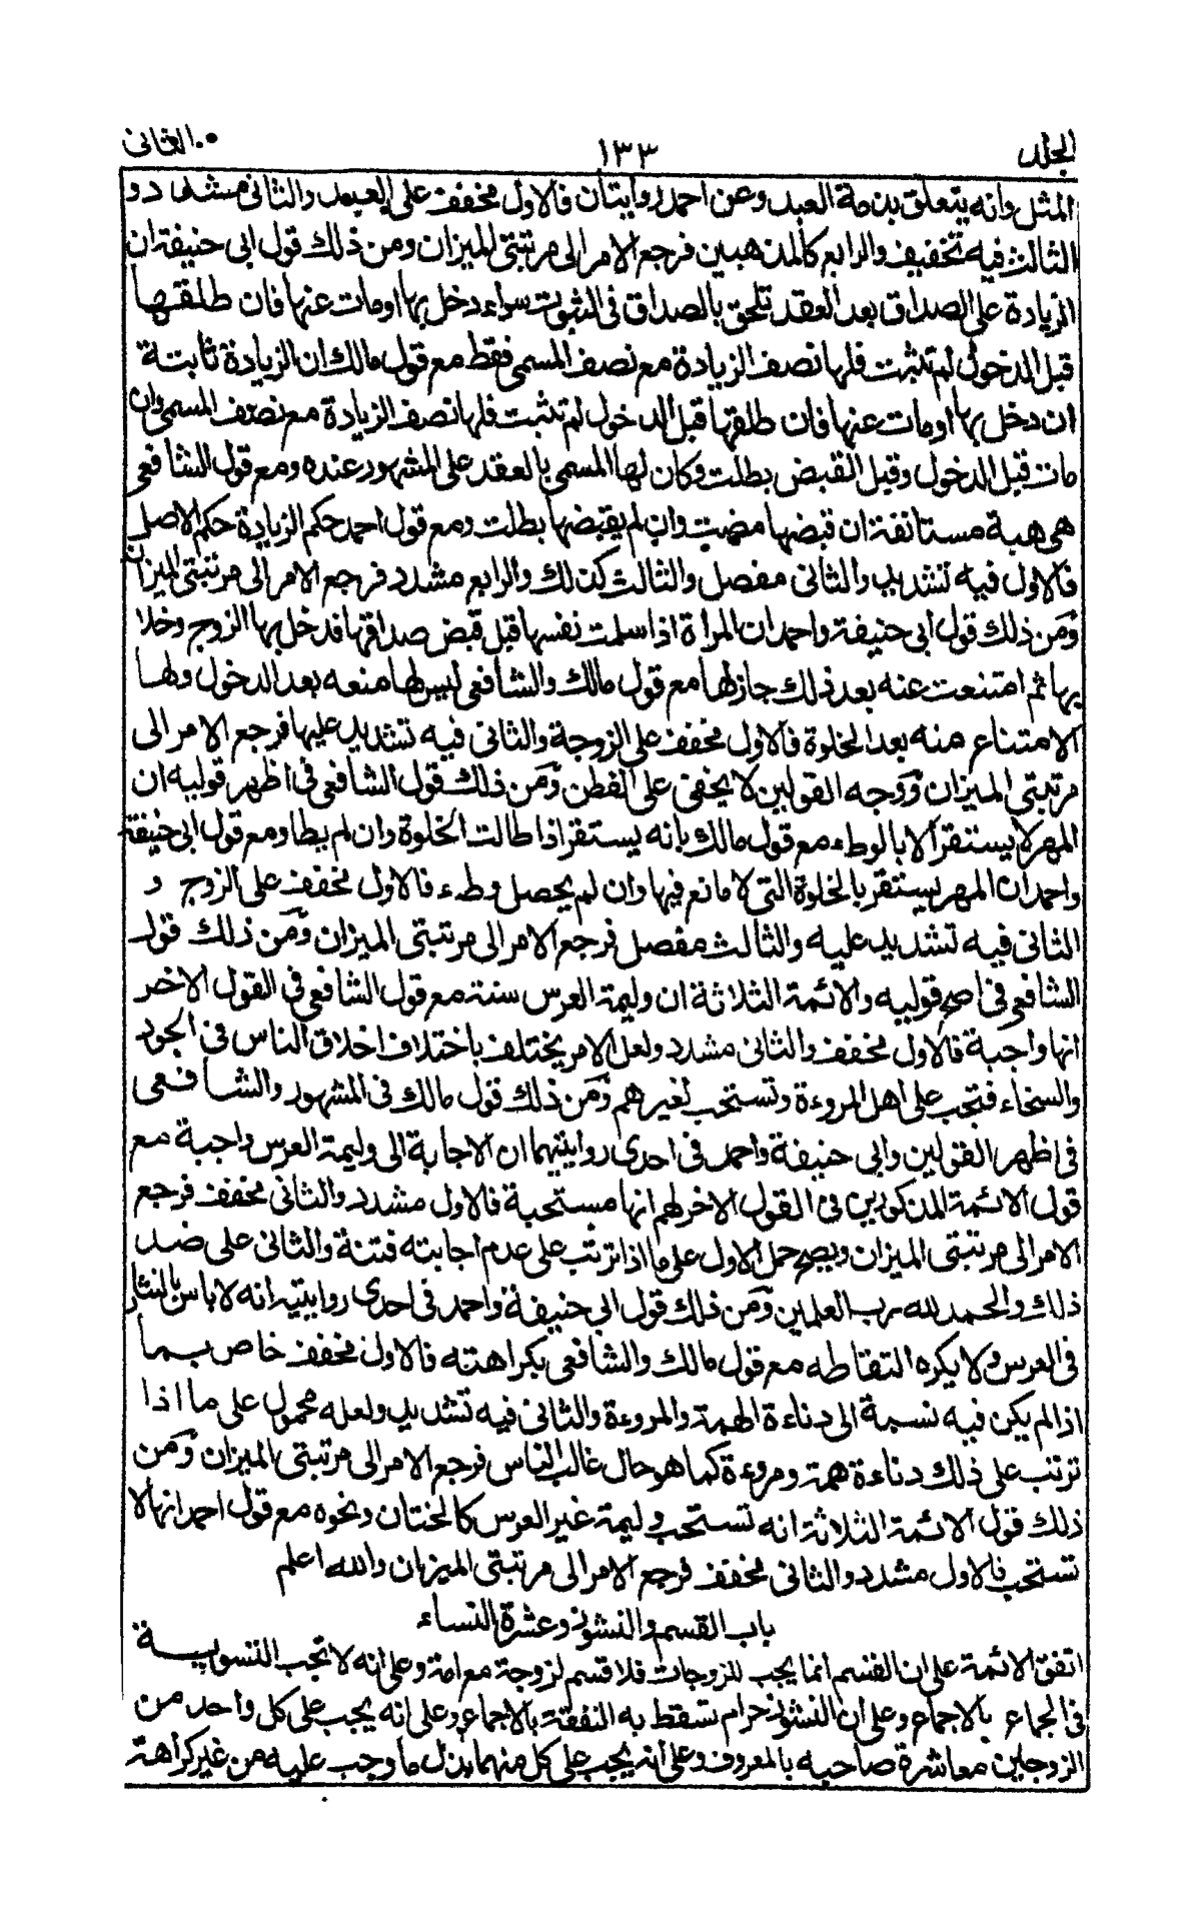 الجلد ١٣٣ الثانى
المثل وانه يتعلق بذمة العبد وعن احمد روايتان فالاول مخفف على العبد والثانى مشدد و
الثالث فيه تخفيف والرابع كالمذهبين فرجع الامر الى مرتبتى الميزان ومن ذلك قول ابى حنيفة ان
الزيادة على الصداق بعد العقد تلحق بالصداق فى الثبوت سواء دخل بها او مات عنها فان طلقها
قبل الدخول لم تثبت فلها نصف الزيادة مع نصف المسمى فقط مع قول مالك ان الزيادة ثابتة
ان دخل بها او مات عنها فان طلقها قبل الدخول لم تثبت فلها نصف الزيادة مع نصف المسمى وان
مات قبل الدخول وقبل القبض بطلت وكان لها المسمى بالعقد على المشهور عنده ومع قول الشافعى
هى هبة مستانفة ان قبضها مضت وان لم يقبضها بطلت ومع قول احمد حكم الزيادة حكم الاصل
فالاول فيه تشديد والثانى مفصل والثالث كذلك والرابع مشدد فرجع الامر الى مرتبتى الميزان
ومن ذلك قول ابى حنيفة واحمد ان المرأة اذا سلمت نفسها قبل قبض صداقها فدخل بها الزوج وخلا
بها ثم امتنعت عنه بعد ذلك جاز لها مع قول مالك والشافعى ليس لها منعه بعد الدخول ولها
الامتناع منه بعد الخلوة فالاول مخفف على الزوجة والثانى فيه تشديد عليها فرجع الامر الى
مرتبتى الميزان ووجه القولين لا يخفى على الفطن ومن ذلك قول الشافعى فى اظهر قوليه ان
المهر لا يستقر الا بالوطء مع قول مالك بانه يستقر اذا طالت الخلوة وان لم يطا ومع قول ابى حنيفة
واحمد ان المهر يستقر بالخلوة التى لا مانع فيها وان لم يحصل وطء فالاول مخفف على الزوج و
الثانى فيه تشديد عليه والثالث مفصل فرجع الامر الى مرتبتى الميزان ومن ذلك قول
الشافعى فى اصح قوليه والائمة الثلاثة ان وليمة العرس سنة مع قول الشافعى فى القول الاخر
انها واجبة فالاول مخفف والثانى مشدد ولعل الامر يختلف باختلاف اخلاق الناس فى الجود
والسخاء فتجب على اهل المروءة وتستحب لغيرهم ومن ذلك قول مالك فى المشهور والشافعى
فى اظهر القولين وابى حنيفة واحمد فى احدى روايتيهما ان الاجابة الى وليمة العرس واجبة مع
قول الائمة المذكورين فى القول الاخر لهم انها مستحبة فالاول مشدد والثانى مخفف فرجع
الامر الى مرتبتى الميزان ويصح حمل الاول على ما اذا ترتب على عدم اجابته فتنة والثانى على ضد
ذلك والحمد لله رب العلمين ومن ذلك قول ابى حنيفة واحمد فى احدى روايتيه انه لا باس بالنثار
فى العرس ولا يكره التقاطه مع قول مالك والشافعى بكراهته فالاول مخفف خاص بما
اذا لم يكن فيه نسبة الى دناءة الهمة والمروءة والثانى فيه تشديد ولعله محمول على ما اذا
ترتب على ذلك دناءة همة ومروءة كما هو حال غالب الناس فرجع الامر الى مرتبتى الميزان ومن
ذلك قول الائمة الثلاثة انه تستحب وليمة غير العرس كالختان ونحوه مع قول احمد انها لا
تستحب فالاول مشدد والثانى مخفف فرجع الامر الى مرتبتى الميزان والله اعلم
باب القسم والنشوز وعشرة النساء
اتفق الائمة على ان القسم انما يجب للزوجات فلا قسم لزوجة مع امة وعلى انه لا تجب التسوية
فى الجماع بالاجماع وعلى ان النشوز حرام تسقط به النفقة بالاجماع وعلى انه يجب على كل واحد من
الزوجين معاشرة صاحبه بالمعروف وعلى انه يجب على كل منهما بذل ما وجب عليه من غير كراهة